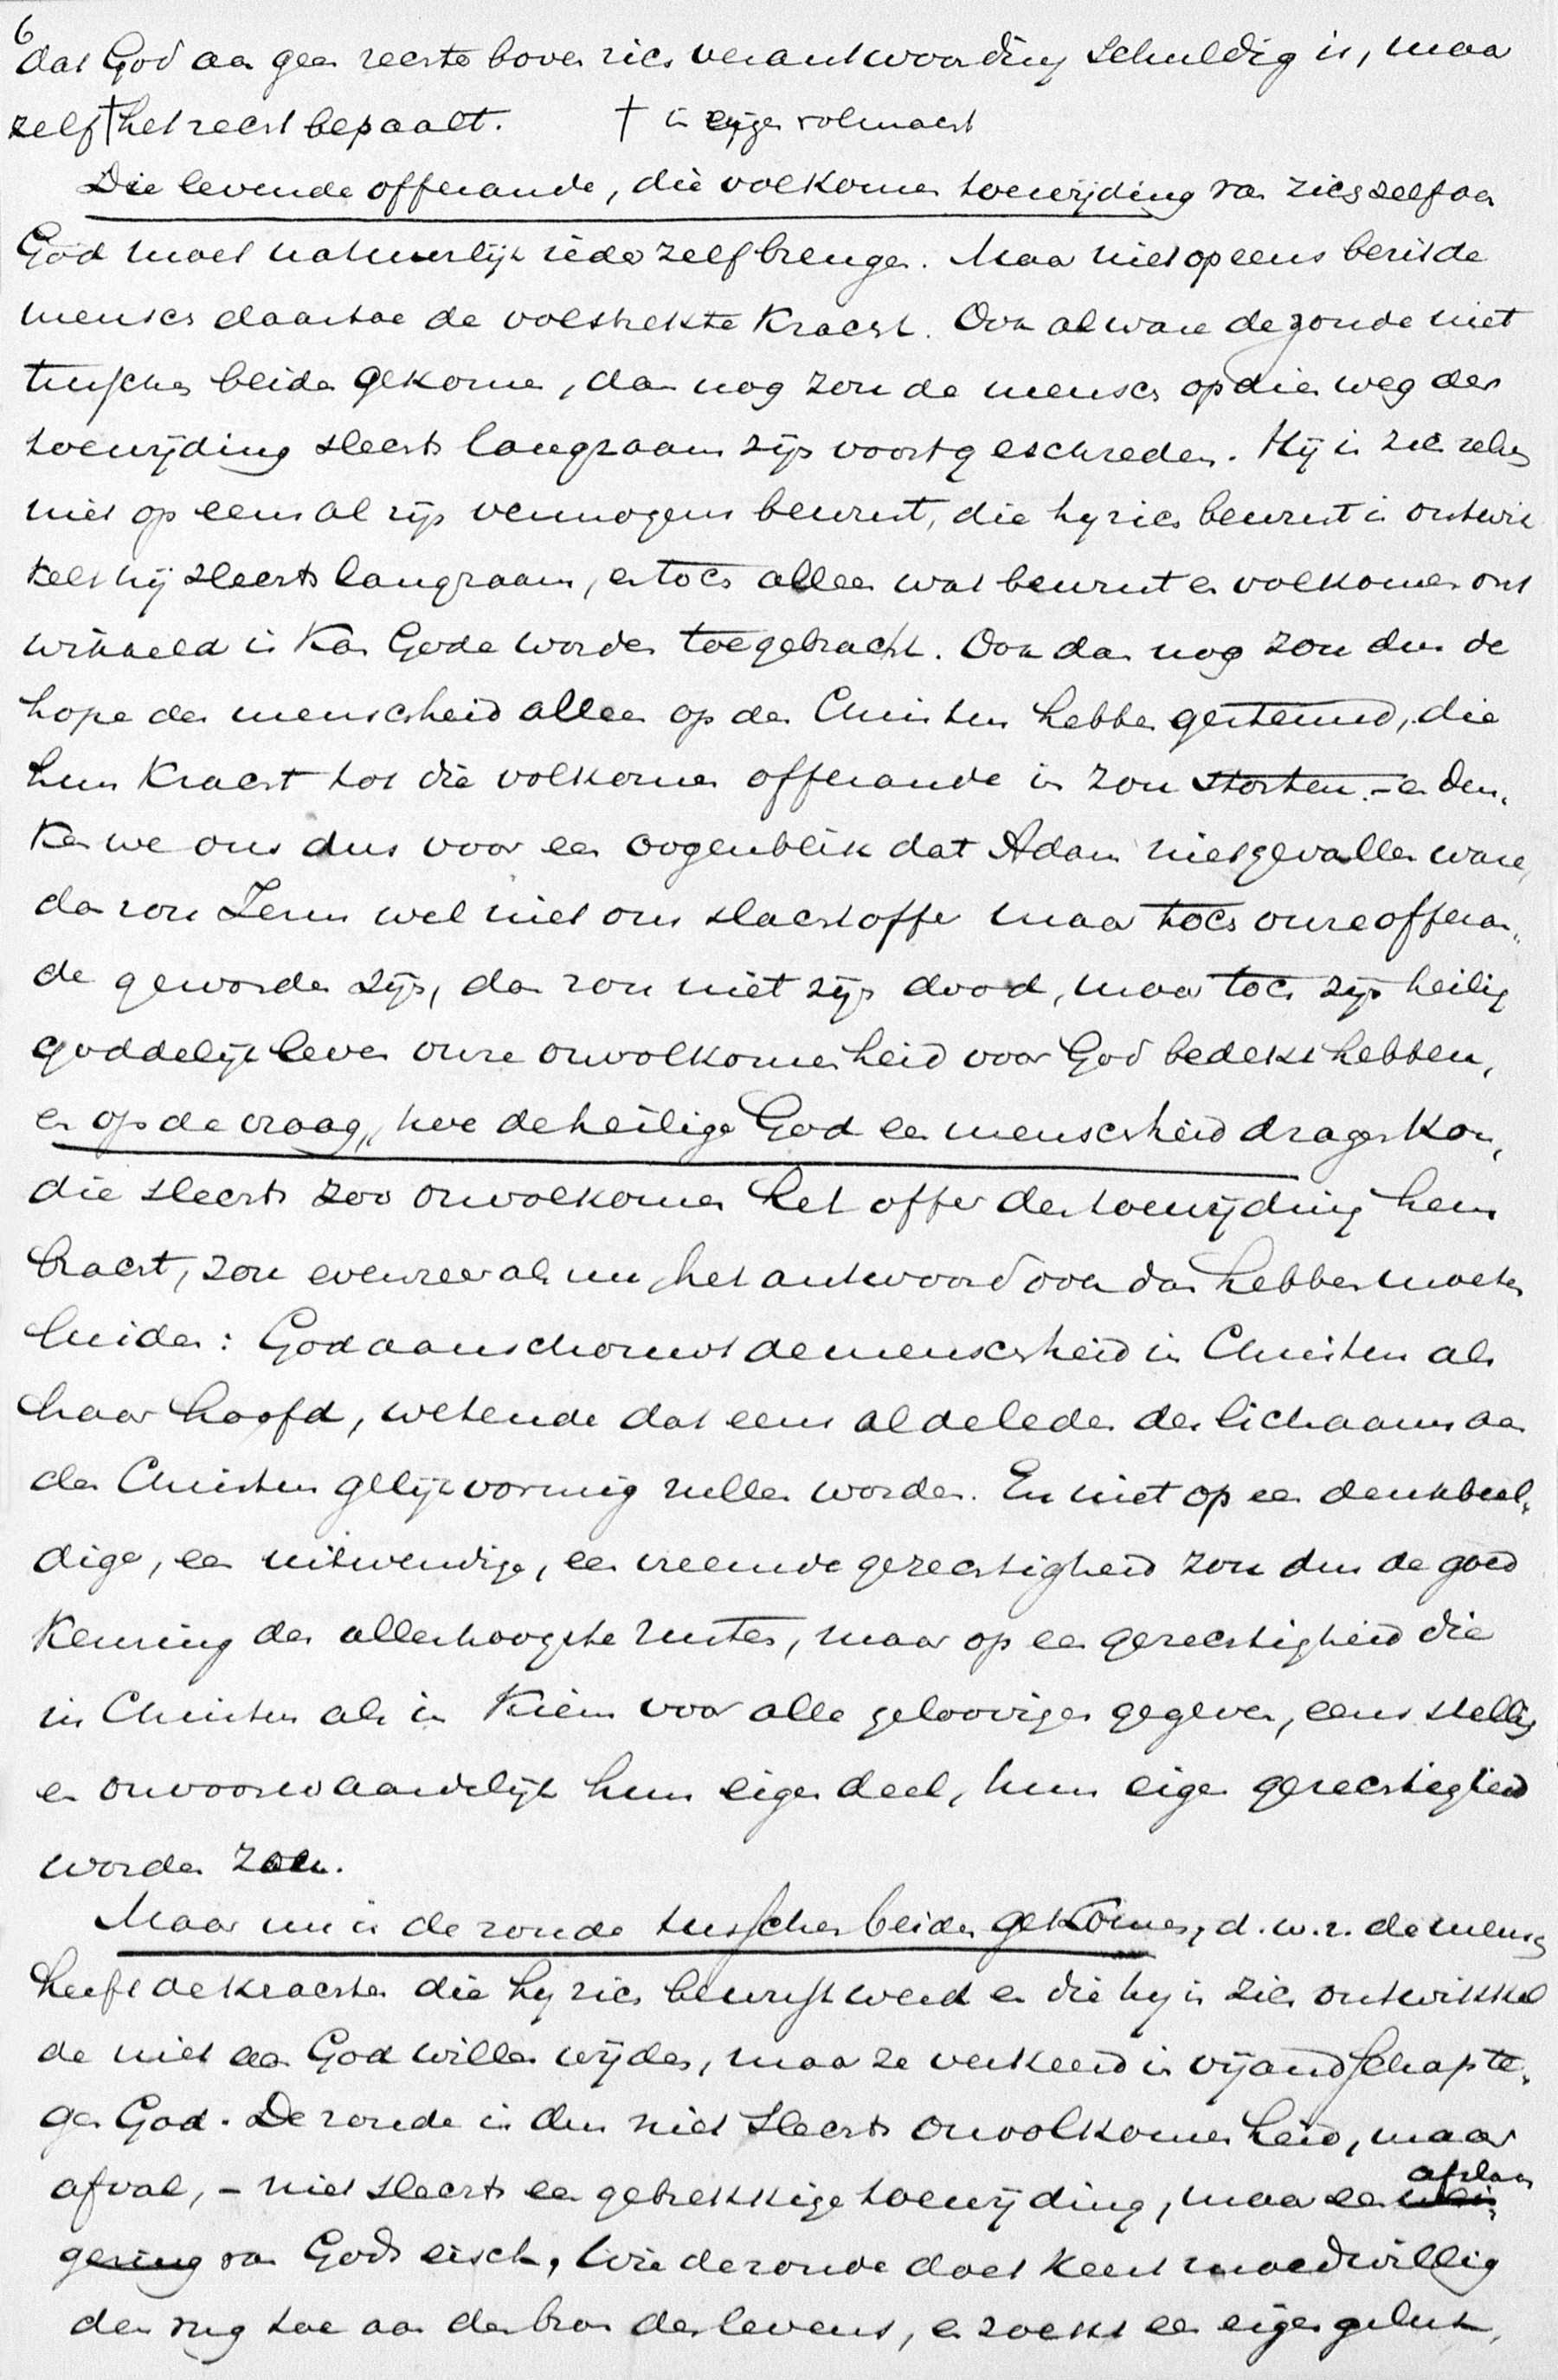 6
dat God aan geen rechter boven zich verantwoording schuldig is, maar
zelf † het recht bepaalt. † in eigen volmacht
Die levende offerande, die volkomen toewijding van zich zelf aan
God moet natuurlijk ieder zelf brengen. Maar niet opeens bezit de
mensch daartoe de volstrekte kracht. Ook al ware de zonde niet
tusschen beiden gekomen, dan nog zou de mensch op dien weg der
toewijding slechts langzaam zijn voortgeschreden. Hij is zich zelven
niet op eenmaal zijn vermogens bewust, die hij zich bewust is ontwik
kelt hij slechts langzaam, en toch alleen wat bewust en volkomen ont
wikkeld is kan Gode worden toegebracht. Ook dan nog zou dus de
hope der menschheid alleen op den Christus hebben gesteund, die
hun kracht tot die volkomen offerande in zou storten. - en den-
ken we ons dus voor een oogenblik dat Adam niet gevallen ware,
dan zou Jezus wel niet ons slachtoffer maar toch onze offeran-
de geworden zijn, dan zou niet zijn dood, maar toch zijn heilig
goddelijk leven onze onvolkomenheid voor God bedekt hebben,
en op de vraag, hoe de heilige God een menschheid dragen kon,
die slechts zoo onvolkomen het offer der toewijding hem
bracht, zou evenzeer als nu het antwoord ook dan hebben moeten
luiden: God aanschouwt de menschheid in Christus als
haar hoofd, wetende dat eens al de leden des lichaams aan
den Christus gelijkvormig zullen worden. En niet op een denkbeel-
dige, een uitwendige, een vreemde gerechtigheid zou dus de goed
keuring des allerhoogste rusten, maar op een gerechtigheid die
in Christus als in kiem voor alle geloovigen gegeven, eens stellig
en onvoorwaardelijk hun eigen deel, hun eigen gerechtigheid
worden zou.
Maar nu is de zonde tusschen beiden gekomen, d.w.z. de mensch
heeft de krachten die hij zich bewust werd en die hij in zich ontwikkel
de niet aan God willen wijden, maar ze verkeerd in vijandschap te-
gen God. De zonde is dus niet slechts onvolkomenheid, maar
afval, - niet slechts een gebrekkige toewijding, maar een wei- afslaan
gering van Gods eisch. Wie de zonde doet keert moedwillig
den rug toe aan de bron des levens, en zoekt een eigen geluk,